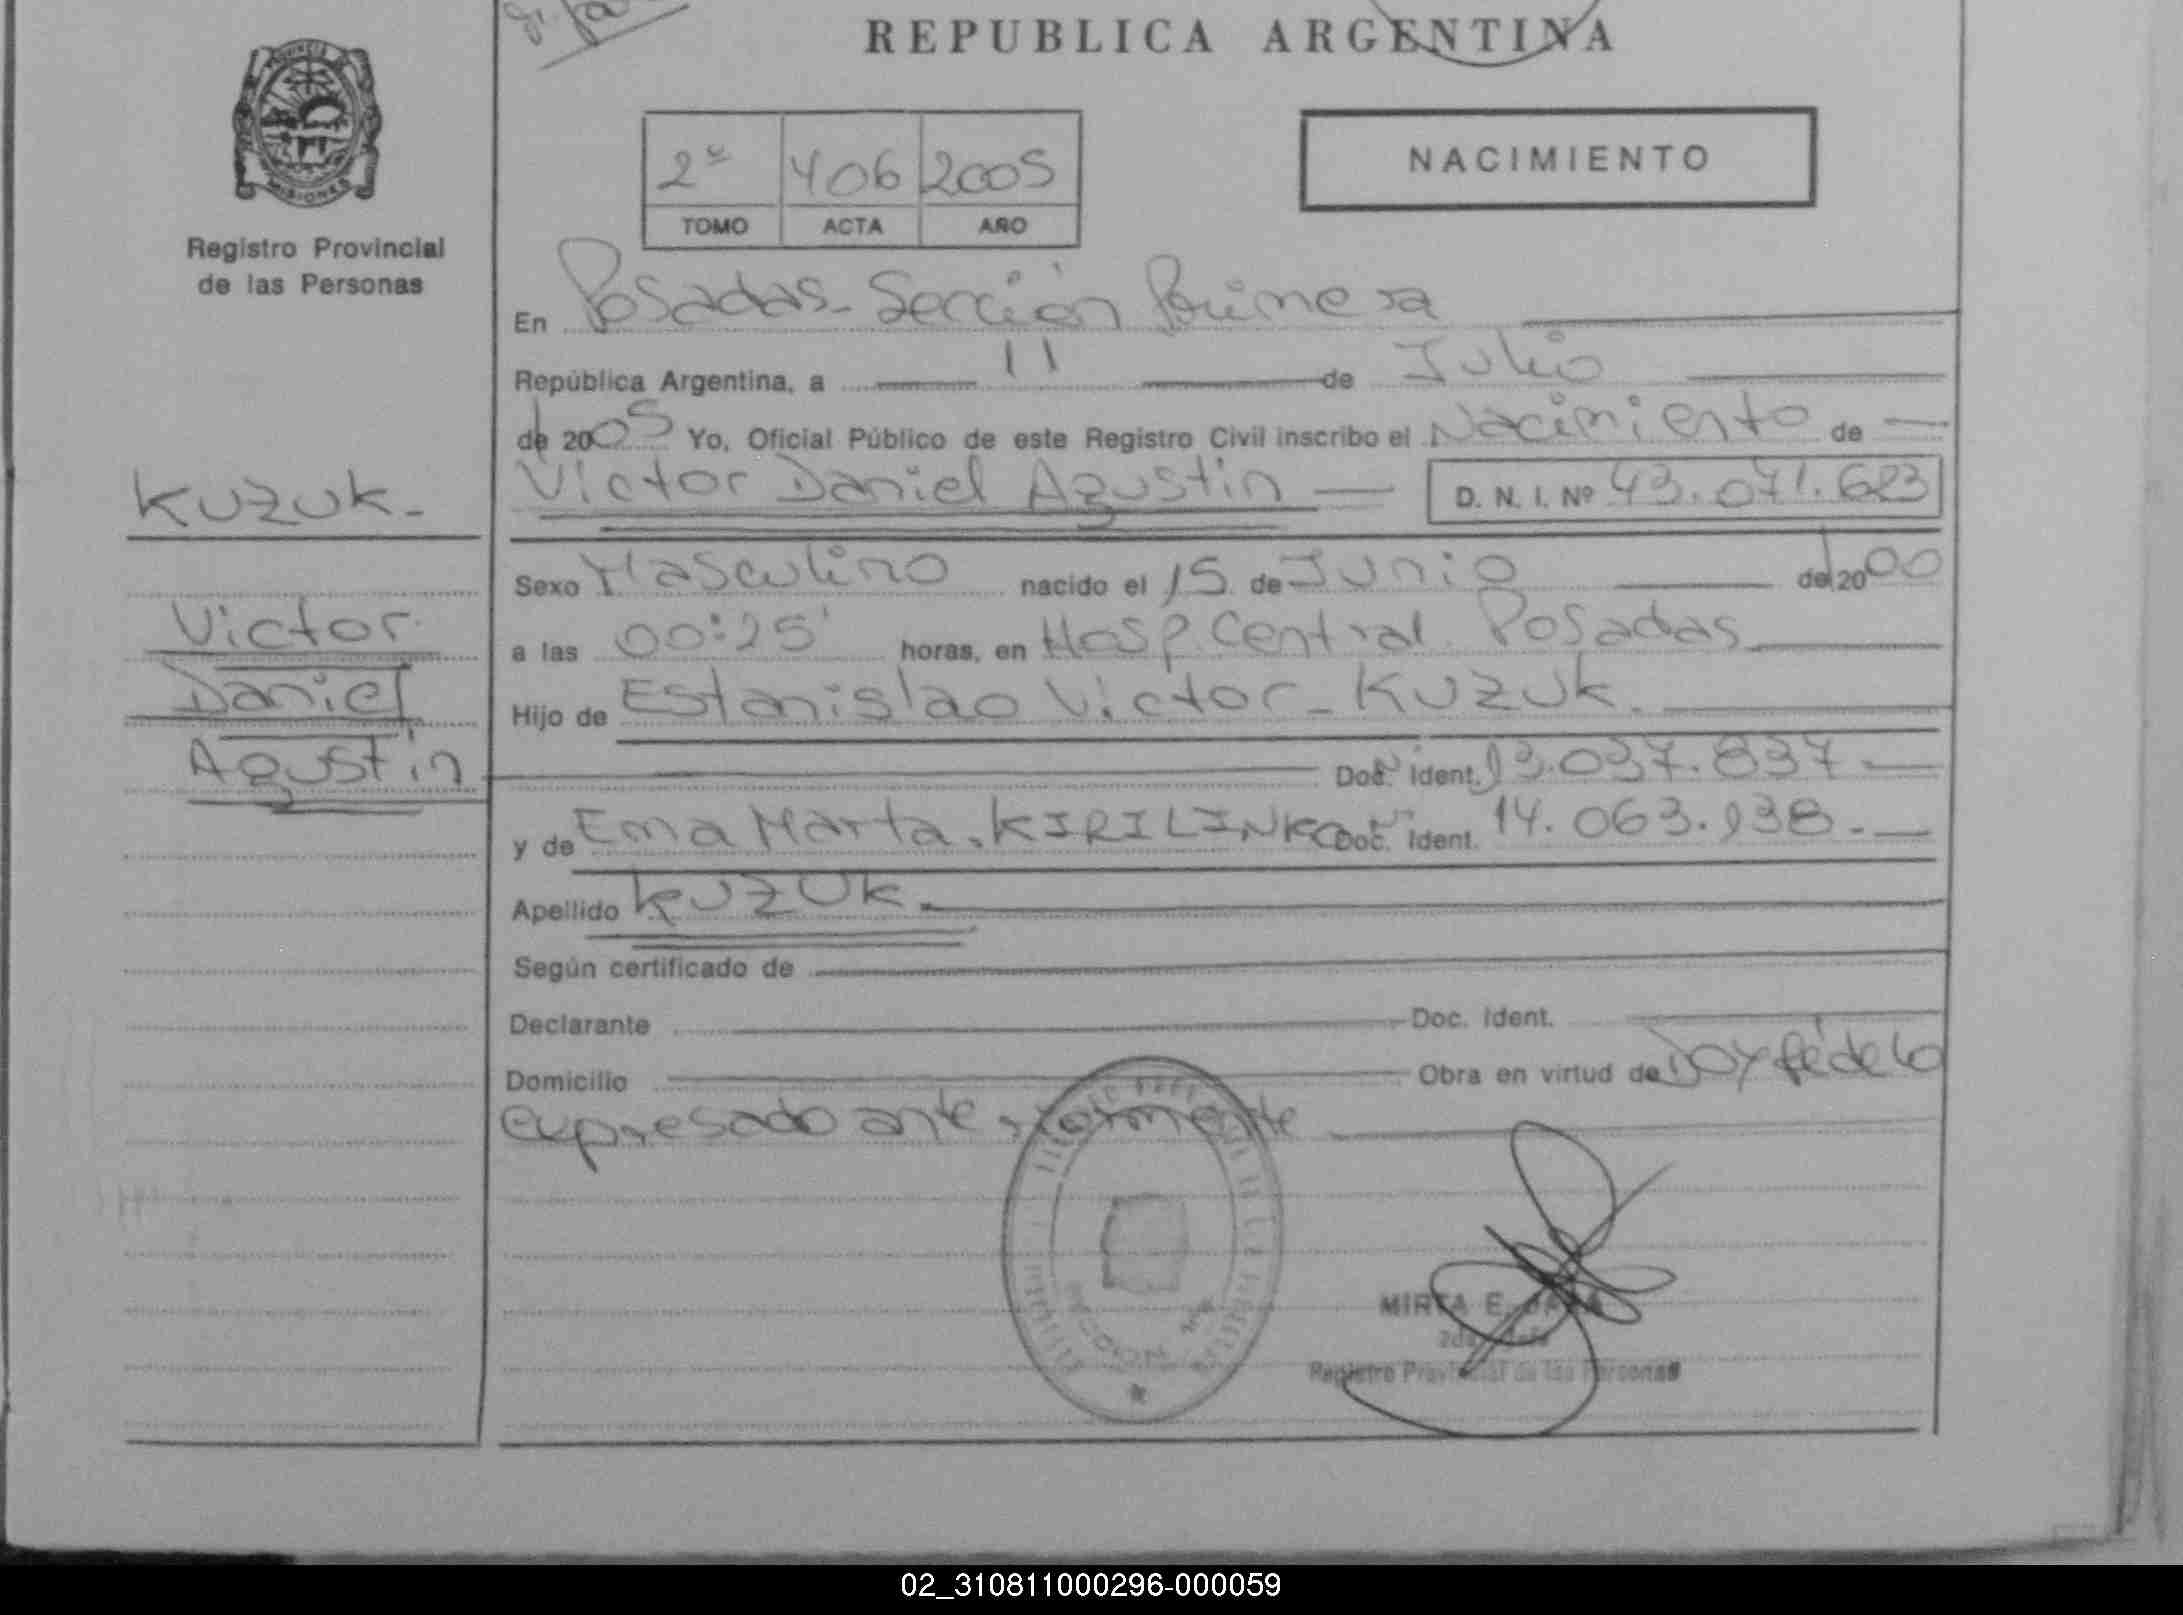 REPUBLICA ARGENTINA
PROVINCIA
MISIONES
Registro Provincial
de las Personas
2º 406 2005
TOMO ACTA AÑO
NACIMIENTO
En Posadas - Sección Primera
República Argentina, a 11 de Julio
de 2005 Yo, Oficial Público de este Registro Civil inscribo el Nacimiento de
KUZUK.-
Victor Daniel Agustin D. N. I. Nº 43.071.623
Sexo Masculino nacido el 15 de Junio de 2000
Victor
a las 00:25' horas, en Hosp. Central Posadas
Daniel
Hijo de Estanislao Victor - KUZUK.
Agustin
Doc. Ident. 13.037.837
y de Ema Marta. KIRILINKO Doc. Ident. 14.063.938.-
Apellido KUZUK.
Según certificado de
Declarante Doc. Ident.
Domicilio Obra en virtud de Doy fé de lo
expresado anteriormente
MIRTA E.
Registro Provincial de las Personas
02_310811000296-000059